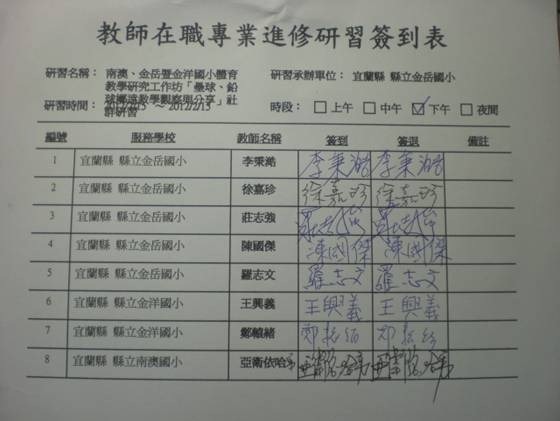 教師在職專業進修研習簽到表
研習名稱： 南澳、金岳暨金洋國小體育
教學研究工作坊「壘球、鉛
球擲遠教學觀察與分享」社
群研習
研習承辦單位： 宜蘭縣 縣立金岳國小
研習時間： 2012/2/15 ～ 2012/2/15
時段： □ 上午 □ 中午 ☑ 下午 □ 夜間
編號 服務學校 教師名稱 簽到 簽退 備註
1 宜蘭縣 縣立金岳國小 李秉澔 李秉澔 李秉澔
2 宜蘭縣 縣立金岳國小 徐嘉珍 徐嘉珍 徐嘉珍
3 宜蘭縣 縣立金岳國小 莊志強
4 宜蘭縣 縣立金岳國小 陳國傑 陳國傑 陳國傑
5 宜蘭縣 縣立金岳國小 羅志文 羅志文 羅志文
6 宜蘭縣 縣立金洋國小 王興義 王興義 王興義
7 宜蘭縣 縣立金洋國小 鄭
8 宜蘭縣 縣立南澳國小 亞衛依哈